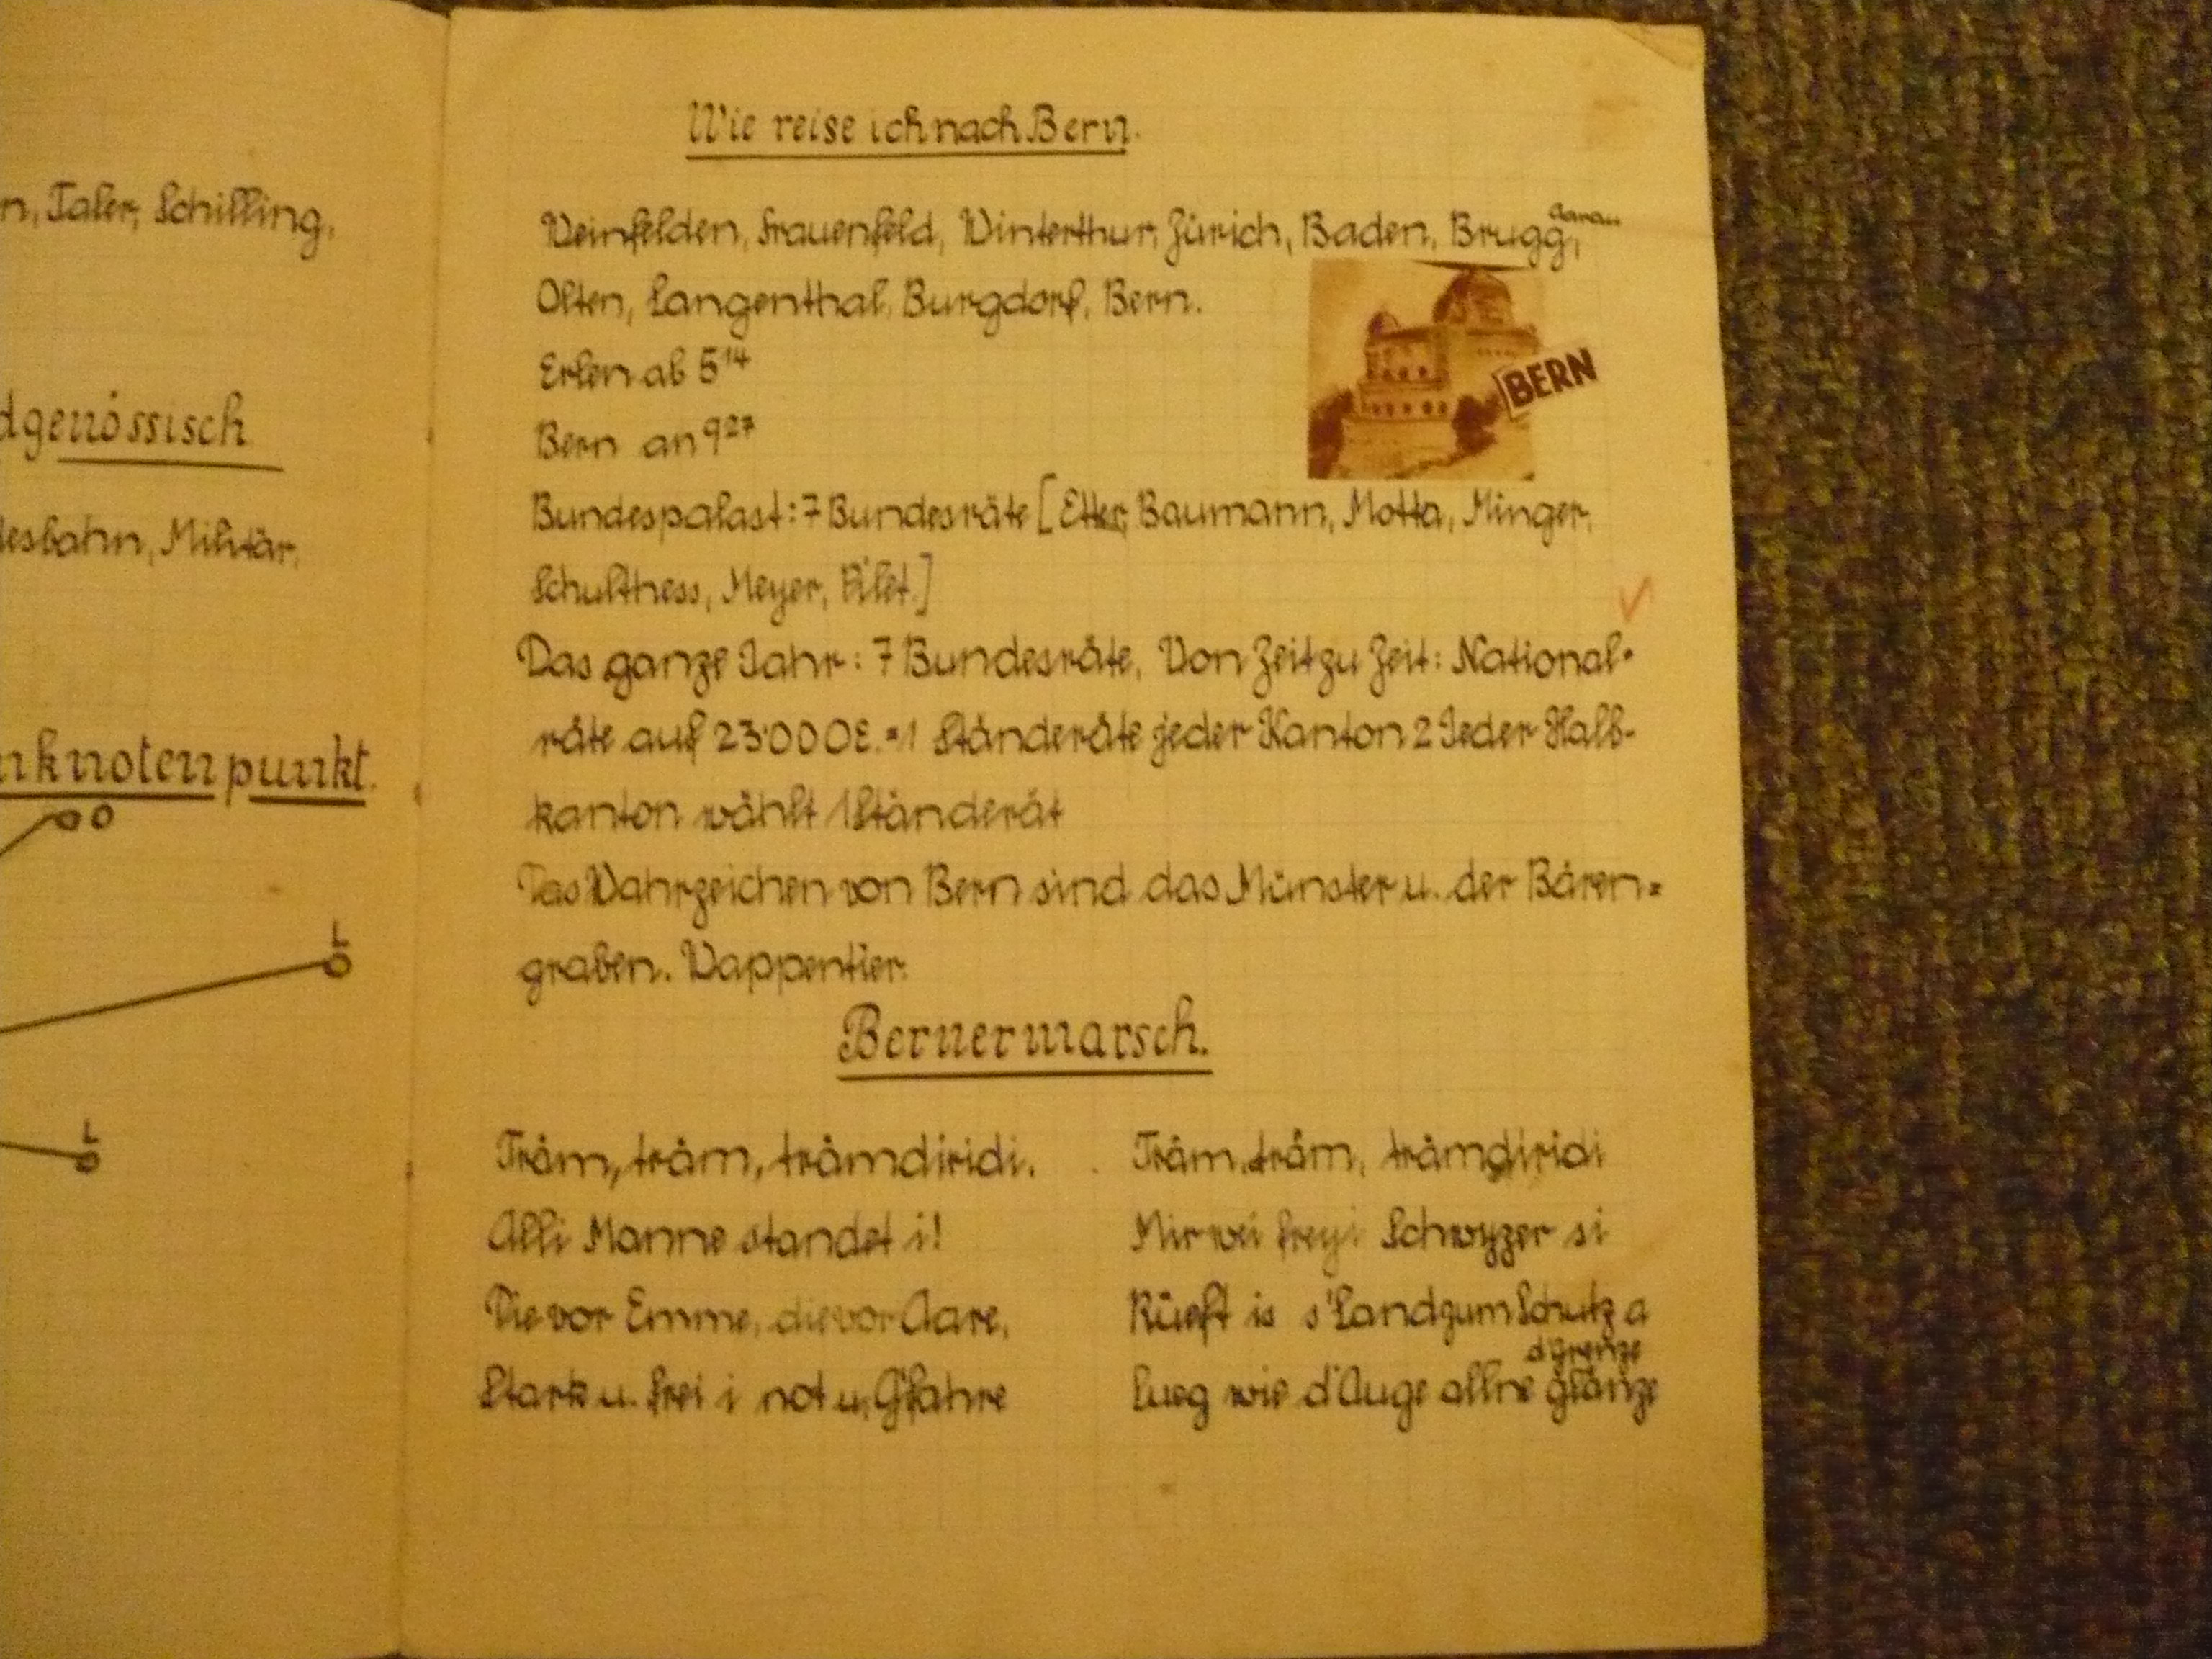 n, Taler, Schilling,
dgenössisch
desbahn, Militär,
nknotenpunkt.
O
L
L
Wie reise ich nach Bern.
Weinfelden, Frauenfeld, Winterthur, Zürich, Baden, Brugg, Aarau
Olten, Langenthal, Burgdorf, Bern.
Erlen ab 5¹⁴
Bern an 9²⁷
BERN
Bundespalast: 7 Bundesräte [Etter, Baumann, Motta, Minger,
Schulthess, Meyer, Pilet.]
Das ganze Jahr: 7 Bundesräte, Von Zeit zu Zeit: National-
räte auf 23'000 E. = 1 Ständeräte jeder Kanton 2 Jeder Halb-
kanton wählt 1 Ständerät
Das Wahrzeichen von Bern sind das Münster u. der Bären=
graben. Wappentier.
Bernermarsch.
Träm, träm, trämdiridi.
Alli Manne standet i!
Die vor Emme, die vor Aare,
Stark u. frei i not u. G'fahre
Träm, träm, trämdiridi
Mir wei freyi Schwyzer si
Rüeft is s'Land zum Schutz a
d'Grenze
Lueg wie d'Auge allne glänze